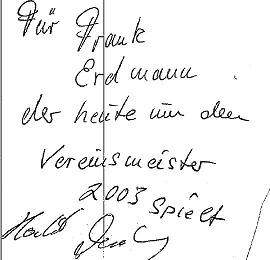 Für Frank
Erdmann
der heute um den
Vereinsmeister
2003 spielt